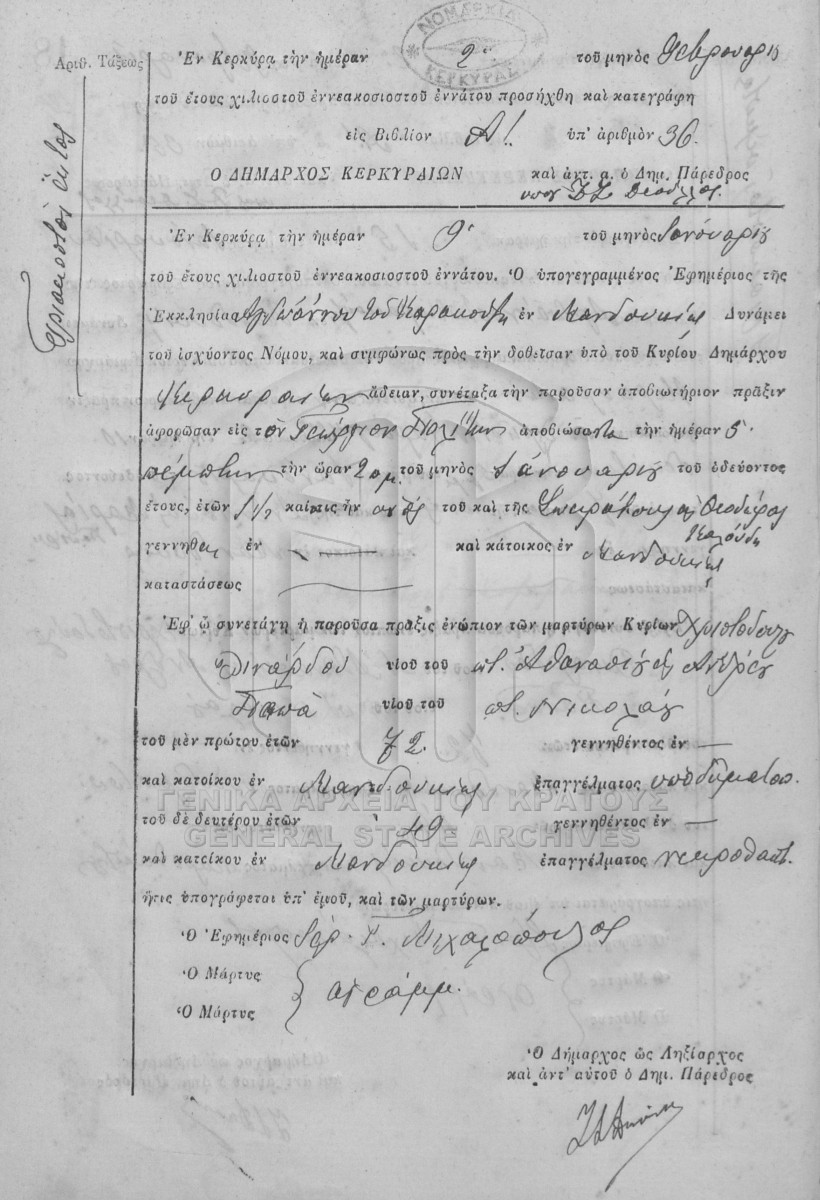 ΝΟΜΑΡΧΙΑ
ΚΕΡΚΥΡΑΣ
Αριθ. Τάξεως
Τριακοστός ἕκτος
Ἐν Κερκύρᾳ τὴν ἡμέραν 2α τοῦ μηνὸς Φεβρουαρίου
τοῦ ἔτους χιλιοστοῦ ἐννεακοσιοστοῦ ἐννάτου προσήχθη καὶ κατεγράφη
εἰς Βιβλίον Α! ὑπ' ἀριθμὸν 36.
Ο ΔΗΜΑΡΧΟΣ ΚΕΡΚΥΡΑΙΩΝ καὶ ἀντ. α. ὁ Δημ. Πάρεδρος
Ἐν Κερκύρᾳ τὴν ἡμέραν 9η τοῦ μηνὸς Ἰανουαρίου
τοῦ ἔτους χιλιοστοῦ ἐννεακοσιοστοῦ ἐννάτου. Ὁ ὑπογεγραμμένος Ἐφημέριος τῆς
Ἐκκλησίας Ἰωάννου τοῦ ἐν Μανδουκίῳ Δυνάμει
τοῦ ἰσχύοντος Νόμου, καὶ συμφώνως πρὸς τὴν δοθεῖσαν ὑπὸ τοῦ Κυρίου Δημάρχου
Κερκυραίων ἄδειαν, συνέταξα τὴν παροῦσαν ἀποβιωτήριον πρᾶξιν
ἀφορῶσαν εἰς τὸν Γεώργιον Πολίτην ἀποβιώσαντα τὴν ἡμέραν 5
πέμπτην τὴν ὥραν 2 μ.μ. τοῦ μηνὸς Ἰανουαρίου τοῦ ὁδεύοντος
ἔτους, ἐτῶν 1 1/2 καὶ τις ἦν υἱὸς τοῦ καὶ τῆς Σπυρίδωνος Θεοδώρας
γεννηθεὶς ἐν — καὶ κάτοικος ἐν Μανδουκίῳ
καταστάσεως —
Ἐφ' ᾧ συνετάγη ἡ παροῦσα πρᾶξις ἐνώπιον τῶν μαρτύρων Κυρίων Χριστοδούλου
υἱοῦ τοῦ π. Ἀθανασίου καὶ Ἀνδρέου
Παπᾶ υἱοῦ τοῦ π. Νικολάου
τοῦ μὲν πρώτου ἐτῶν 72. γεννηθέντος ἐν —
καὶ κατοίκου ἐν Μανδουκίῳ ἐπαγγέλματος ὑποδηματοπ.
τοῦ δὲ δευτέρου ἐτῶν 49 γεννηθέντος ἐν —
καὶ κατοίκου ἐν Μανδουκίῳ ἐπαγγέλματος νεκροθάπτ.
ἥτις ὑπογράφεται ὑπ' ἐμοῦ, καὶ τῶν μαρτύρων.
Ὁ Ἐφημέριος Ἱερ. Γ. Μιχαλόπουλος
Ὁ Μάρτυς
ἀγράμμ.
Ὁ Μάρτυς
Ὁ Δήμαρχος ὡς Ληξίαρχος
καὶ ἀντ' αὐτοῦ ὁ Δημ. Πάρεδρος
ΓΕΝΙΚΑ ΑΡΧΕΙΑ ΤΟΥ ΚΡΑΤΟΥΣ
GENERAL STATE ARCHIVES